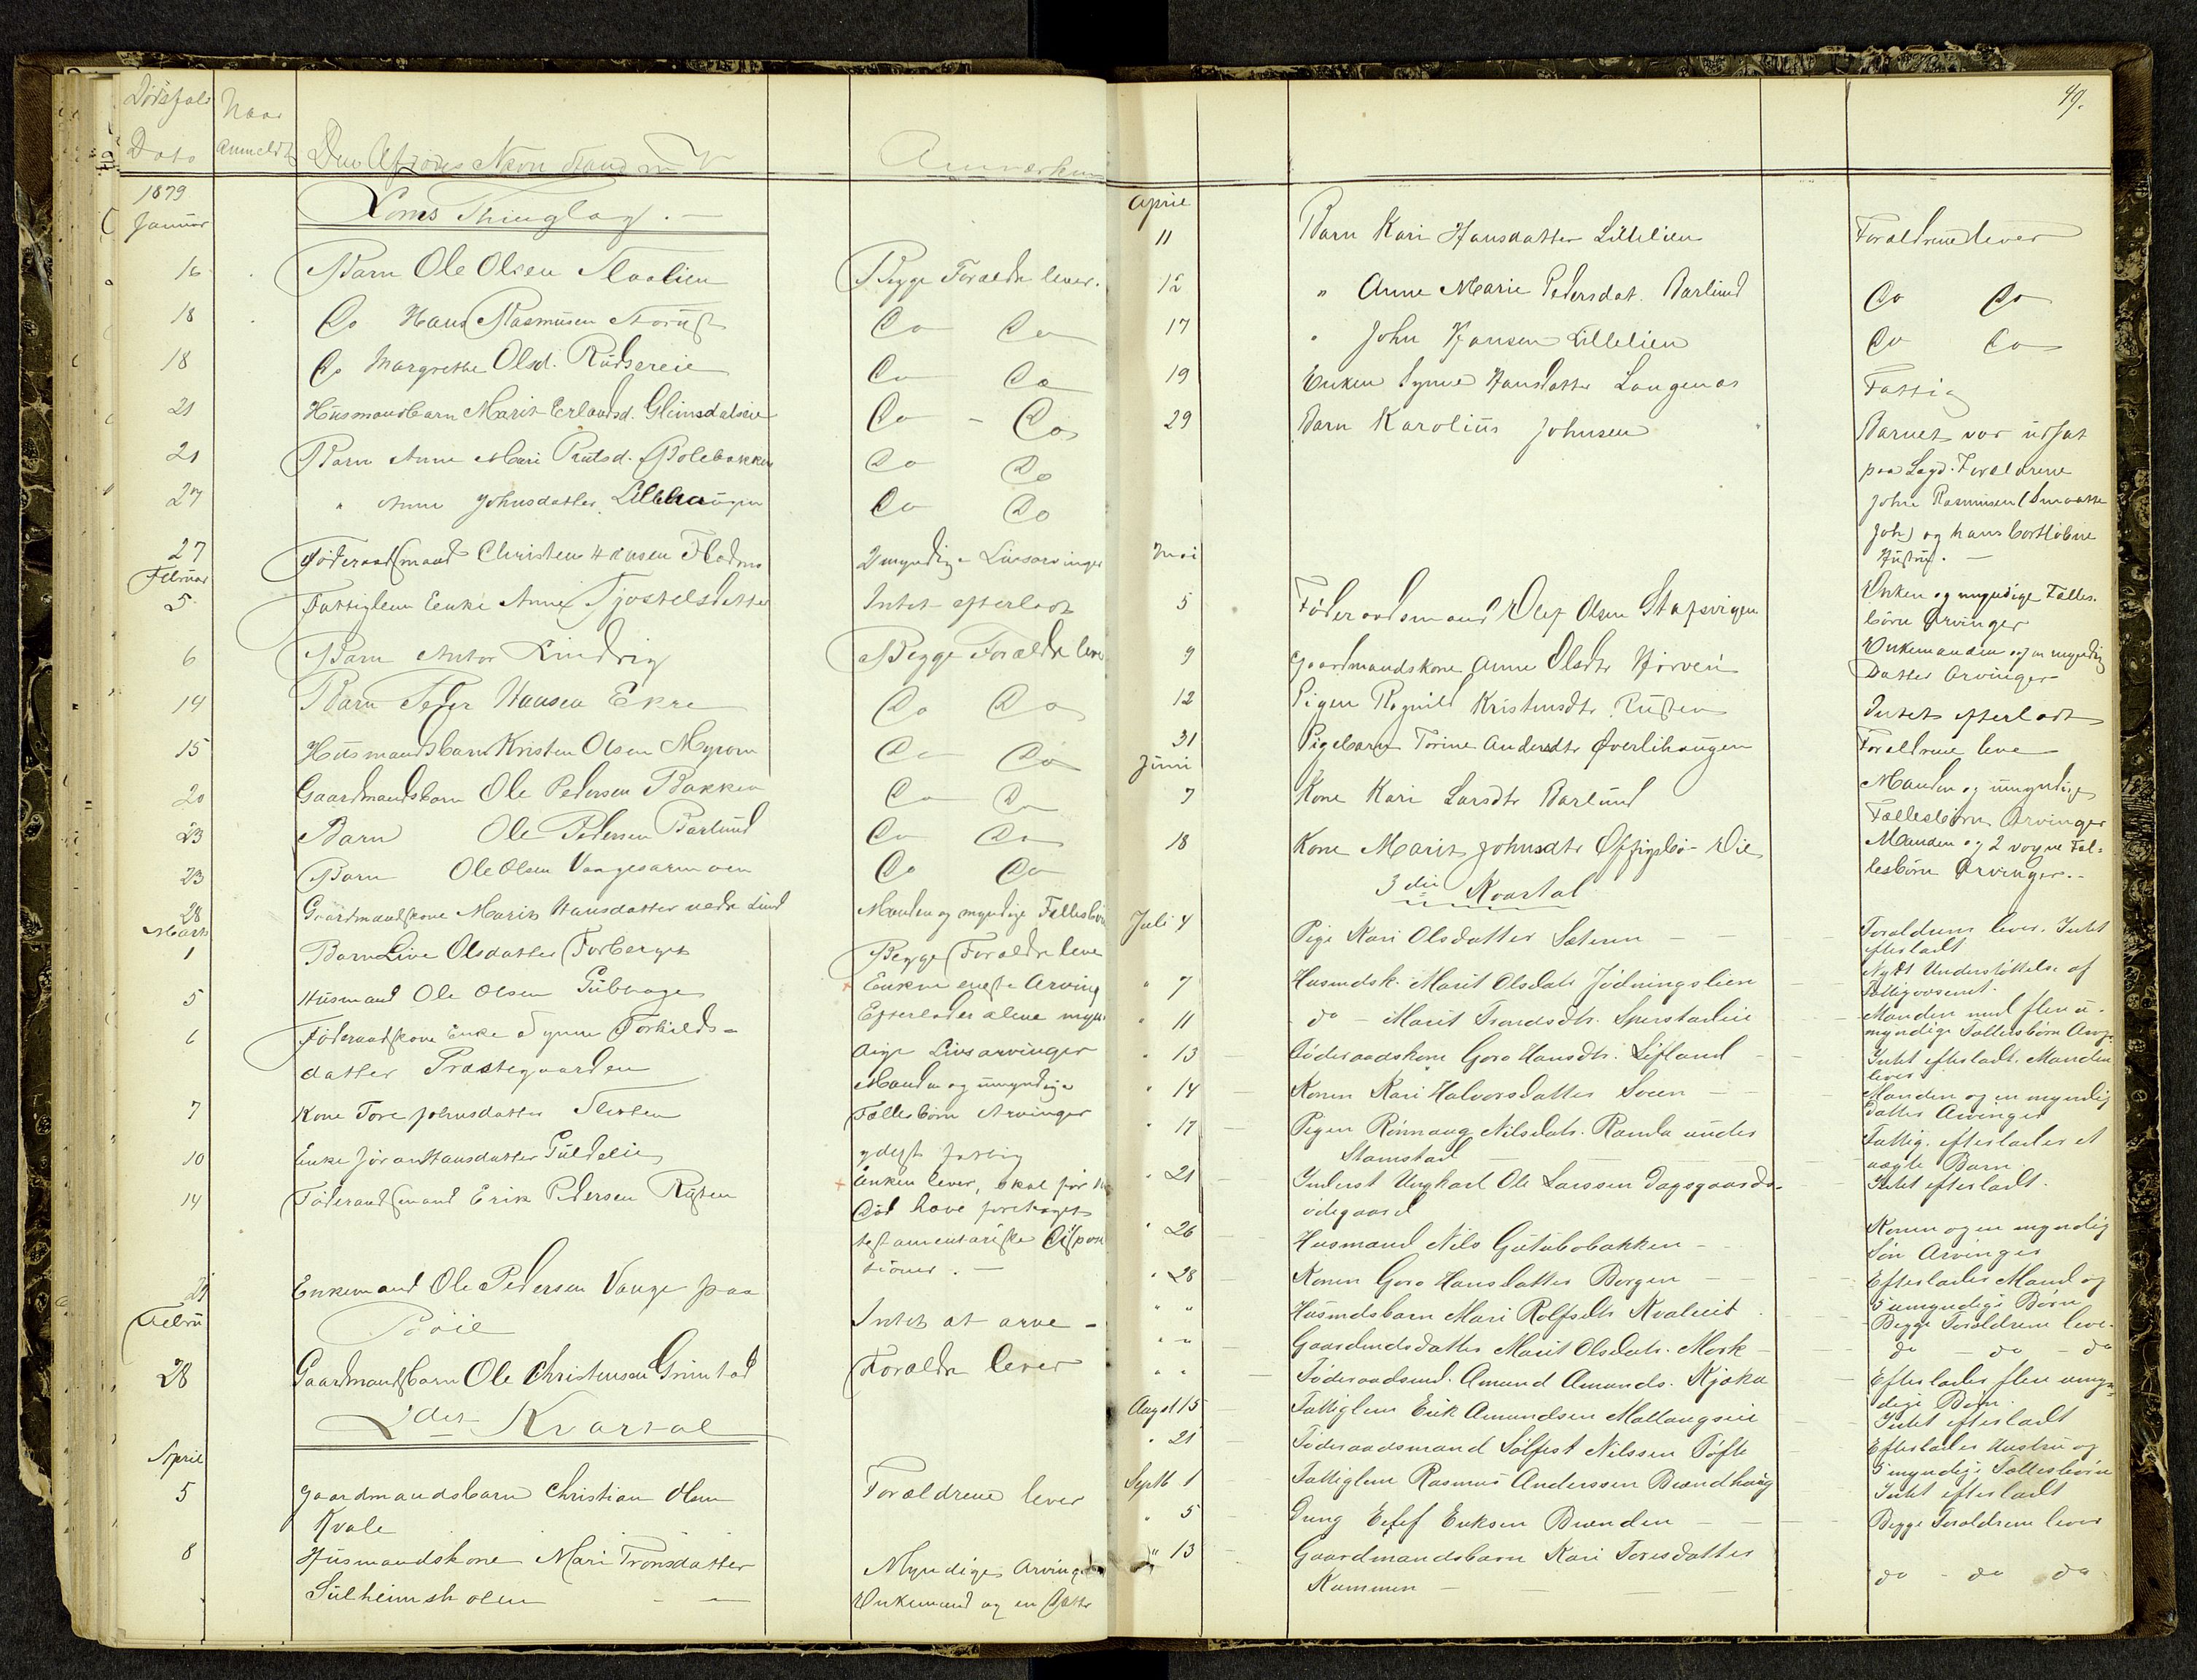 Dødsfals
Dato
Naar
Anmeldt
Den Afdødes Navn Stand
Anmærkn
1879
Januar
Loms Thinglag. —
16 Barn Ole Olsen Slaalien Begge Foræld lever.
18 Do Hans Rasmusen Do Do
18 Do Margrethe Olsd. Rudsereie Do Do
21 Husmandbarn Marit Erlandsd. Glimsdalseie Do - Do
21 Barn Anne Mari Do Do
27 " Anne Johnsdatter Lillehaugen Do Do
27 Føderaadsmand Christen Hansen Flatmo 2 myndige Livsarvinger
Februar
5 Fattiglem Enke Anne Tjostelsdatter Intet efterladt
6 Barn Anton Lindvig Begge Forældr leve
14 Barn Peder Hansen Ekre Do Do
15 Husmandsbarn Kristen Olsen Myrom Do Do
20 Gaardmandsbarn Ole Pedersen Bakken Do Do
23 Barn Ole Pedersen Barlund Do Do
23 Barn Ole Olsen Vaagesarmoen Do Do
28 Gaardmandskone Marit Hansdatter nedr Lund Manden og myndige Fellesbørn
Marts
1 Barn Live Olsdatter Forberget Begge Foræld leve
5 Husmand Ole Olsen Enken eneste Arving
6 Føderaadskone Enke Synne Torkilds- Efterlader alene myn-
datter Præstegaarden dige Livsarvinger
Manden og umyndige
7 Kone Tore Johnsdatter Sletten Fællesbørn Arvinger
10 Enke Jøran Hansdatter yderst fattig
14 Føderaadsmand Erik Pedersen Rusten Enken lever, skal før
Død have foretaget
testamentariske Disposi
tioner. —
21 Enkemand Ole Pedersen Vange paa
Intet at arve -
Febru
28 Gaardmandsbarn Ole Christensen Grimstad Forældr lever
2det Kvartal
April
5 Gaardmandsbarn Christian Olsen Forældrene lever
Kvale
8 Husmandskone Mari Tronsdatter Myndige Arvinge
Sulheimsholen Enkemand og en Datter
49.
April
11 Barn Kari Hansdatter Lillelien Forældrene lever
12 " Anne Marie Pedersdat. Barlund Do Do
17 " John Hansen Lillelien Do Do
19 Enken Synne Hansdatter Langenæs Fattig
29 Barn Karolius Johnsen Barnet var udsat
paa Lægd. Forældrene
John Rasmusen (Smaatte
Joh) og hans bortløbne
Hustru. —
Mai
5 Føderaadsmand Olef Olsen Enken og myndige Fælles-
børn Arvinger
9 Gaardmandskone Anne Olsdtr Enkemanden og en myndig
Datter Arvinger
12 Pigen Ragnild Kristensdtr Rusten Intet efterladt
31 Pigebarn Torine Andersdtr Øverlihaugen Forældrene leve
Juni
7 Kone Kari Larsdtr Barlund Manden og umyndige
Fællesbørn Arvinger
18 Kone Marit Johnsdtr Manden og 2 voxne Fæl-
lesbørn Arvinger. -
3die Kvartal
Juli 4 Pige Kari Olsdatter Sæterun Forældrene lever. Intet
efterladt
" 7 Husmdsk. Marit Olsdatr Jødningslien Nydt Understøttelse af
Fattigvæsenet.
" 11 do - Marit Trondsdtr. Manden med flere u-
myndige Fællesbørn Arvg.
" 13 Føderaadskone Goro Hansdtr. Løfland Intet efterladt. Manden
lever
" 14 Konen Kari Halvorsdatter Soeen Manden og en myndig
Datter Arvinger
" 17 Pigen Rønnaug Nilsdatr. Randa under Fattig. efterlader et
Stamstad uægte Barn
" 21 Inderst Ungkarl Ole Larssen Dagsgaards- Intet efterladt.
ødegaard
" 26 Husmand Nils Gutubobakken Konen og en myndig
Søn Arvinger
" 28 Konen Goro Hansdatter Borgen Efterlader Mand og
5 umyndige Børn
" " Husmdsbarn Mari Rolfsdtr Kvaleeit Begge Forældrene leve.
" " Gaardmdsdatter Marit Olsdatr. Mork do - do - do
" " Føderaadsmd. Amund Amunds. Kjæka Efterlader flere umyn-
dige Børn.
Augst 15 Fattiglem Erik Amundsen Intet efterladt
" 21 Føderaadsmand Sølfest Nilssen Tøfte Efterlader Hustru og
5 myndige Fællesbørn
Septb 1 Fattiglem Rasmus Anderssen Brændhaug Intet efterladt
" 5 Dreng Erikssen Brenden Begge Forældrene lever
" 13 Gaardmandsbarn Kari Toresdatter do - do do
Kummen